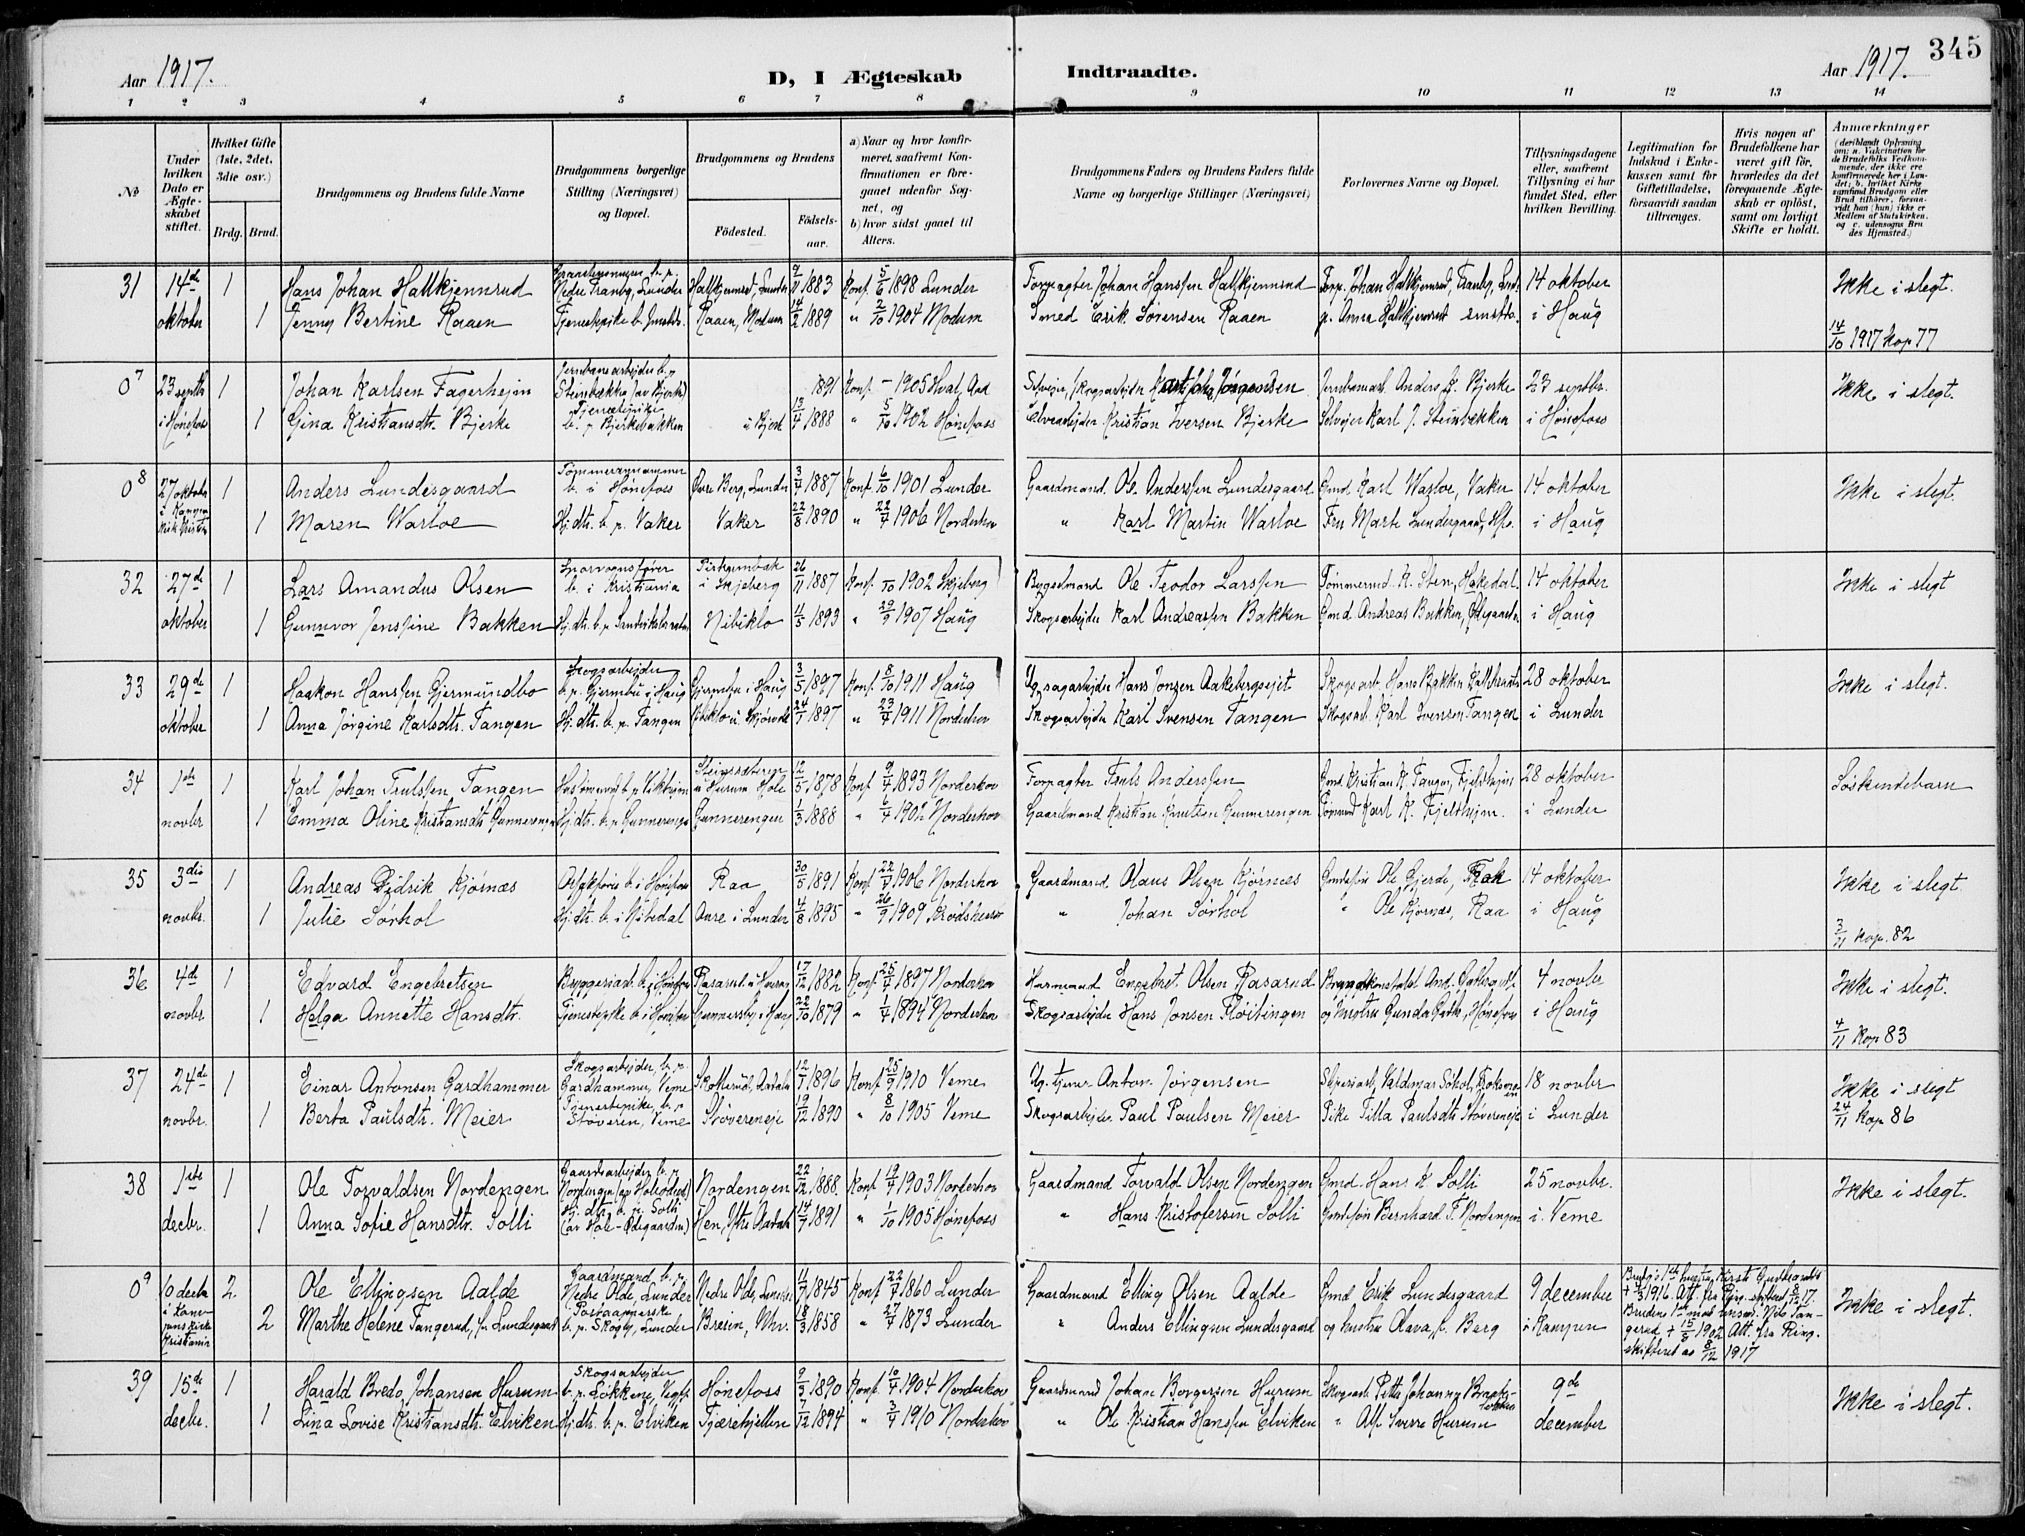 Aar 1917. D, I Ægteskab Indtraadte. Aar 1917. 345
1 2 3 4 5 6 7 8 9 10 11 12 13 14
№
Under hvilken Dato er Ægteskabet stiftet.
Hvilket Gifte (1ste, 2det, 3die osv.)
Brdg. Brud.
Brudgommens og Brudens fulde Navne
Brudgommens borgerlige Stilling (Næringsvei) og Bopæl.
Brudgommens og Brudens
Fødested. Fødselsaar.
a) Naar og hvor konfirmeret, saafremt Konfirmationen er foregaaet udenfor Sognet, og
b) hvor sidst gaaet til Alters.
Brudgommens Faders og Brudens Faders fulde Navne og borgerlige Stillinger (Næringsvei)
Forlovernes Navne og Bopæl.
Tillysningsdagene eller, saafremt Tillysning ei har fundet Sted, efter hvilken Bevilling.
Legitimation for Indskud i Enkekassen samt for Giftetilladelse, forsaavidt saadan tiltrænges.
Hvis nogen af Brudefolkene har været gift før, hvorledes da det foregaaende Ægteskab er opløst, samt om lovligt Skifte er holdt.
Anmærkninger (deriblandt Oplysning om: a. Vakcination for de Brudefolks Vedkommende, der ikke ere konfirmerede her i Landet; b. hvilket Kirkesamfund Brudgom eller Brud tilhører, forsaavidt han (hun) ikke er Medlem af Statskirken, og c. udensogns Brudes Hjemsted.)
31 14de 1 Hans Johan Hallkjennrud Nedre Tranby, Lunder 9/11 1883 Konf. 5/6 1898 Lunder Forpagter Johan Hanssen Hallkjennrud 14 oktober Ikke i slegt.
oktober 1 Jenny Bertine Raaen Raaen, Modum 14/2 1889 " 2/10 1904 Modum Smed Erik Sørensen Raaen i Haug
14/10 1917 kop 77
0 7 23 septb 1 Johan Karlsen Fagerheim Jernbanearbejder b. p. Steinbækken 1891 Konf. – 1905 23 septbr. Ikke i slegt.
i Hønefoss 1 Gina Kristiansdtr. Bjerke b. p. Bjerkebakken 13/4 1888 " 5/10 1902 Hønefoss Elvearbejder Kristian Iversen Bjerke Selvejer Karl J. Steinbekken i Hønefoss
0 8 27 oktober 1 Anders Lundesgaard b. i Hønefoss Øvre Berg, Lunder 3/4 1887 Konf. 6/10 1901 Lunder Gaardmand Ole Anderssen Lundesgaard Gmd. Karl Warloe, Vaker 14 oktober Ikke i slegt.
1 Maren Warloe Hj.dtr. b. p. Vaker Vaker 22/8 1890 " 22/4 1906 Norderhov " Karl Martin Warloe Fru Marte Lundesgaard, Hfs. i Haug
32 27de 1 Lars Amandus Olsen b. i Kristiania i Skjeberg 26/11 1887 Konf. /10 1902 Skjeberg Bygselmand Ole Teodor Larssen 14 oktober Ikke i slegt
oktober 1 Gunnvor Jenssine Bakken Nibiklo 11/5 1893 " 29/9 1907 Haug Skogsarbejder Karl Andreassen Bakken Gmd. Andreas Bakken i Haug
33 29de 1 Haakon Hanssen Gjermundbo Skogsarbejder b. p. Gjermbu i Haug Gjermbu i Haug 3/5 1897 Konf. 8/10 1911 Haug Hans Jonsen Aakebergsejet Skogsarb. Hans Bakken 28 oktober Ikke i slegt.
oktober 1 Anna Jørgine Karlsdtr. Tangen Hj.dtr. b. p. Tangen 24/7 1897 " 23/4 1911 Norderhov Skogsarbejder Karl Svensen Tangen Skogsarb. Karl Svensen Tangen i Lunder
34 1ste 1 Karl Johan Trulssen Tangen 12/5 1878 Konf. 9/4 1893 Norderhov Forpagter Truls Anderssen Gmd. Kristian K. Tangen, Fjeldhejm 28 oktober Søskendebarn
novbr 1 Emma Oline Kristiansdtr. Gunnerengen Hj.dtr. b. p. Gunnerengen Gunnerengen 1/3 1888 " 6/4 1902 Norderhov Gaardmand Kristian Knutsen Gunnerengen Karl K. Fjeldhejm. i Lunder
35 3die 1 Andreas Didrik Kjørnæs b. i Hønefoss Raa 30/5 1891 Konf. 22/4 1906 Norderhov Gaardmand Olaus Olsen Kjørnæs Gmdssøn Ole Gjerde, 14 oktober Ikke i slegt.
novbr. 1 Julie Sørhol Hj.dtr. b. i Aure i Lunder 4/8 1895 " 26/9 1909 Krødsherred " Johan Sørhol " Ole Kjørnæs, Raa i Haug
3/11 kop. 82
36 4de 1 Edvard Engebretsen Bryggeriarb. b. i Hønefoss 17/12 1882 Konf. 25/4 1897 Norderhov Husmand Engebret Olsen Rasarud 4 novbr Ikke i slegt.
novbr. 1 Helga Annette Hansdtr. Tjenestepike b. i Hønefoss 22/10 1879 " 1/4 1894 Norderhov Skogsarbejder Hans Jonsen Fløitingen i Haug
4/11 kop 83
37 24de 1 Einar Antonsen Gardhammer Skogsarbejder, b. p. Gardhammer, Veme Skollerud, Aadalen 12/7 1896 Konf. 25/9 1910 Veme Anton Jørgensen 18 novbr Ikke i slegt
novbr. 1 Berta Paulsdtr. Meier Tjenestepike, b. p. Støveren, Veme Støvereneje 19/12 1890 " 8/10 1905 Veme Skogsarbejder Paul Paulsen Meier Pike Titta Paulsdtr. Støvereneje i Lunder
24/11 kop 86
38 1ste 1 Ole Torvaldsen Nordengen Gaardsarbejder b. p. Nordengen Nordengen 22/12 1888 Konf. 19/4 1903 Norderhov Gaardmand Torvald Olsen Nordengen Gmd. Hans K. Solli 25 novbr. Ikke i slegt.
decbr. 1 Anna Sofie Hansdtr. Solli Hj.dtr. b. p. Solli (av Hole-Ødegaarden) Hen, Ytre Aadal 14/7 1891 " 1/10 1905 Hønefoss " Hans Kristofersen Solli Gmdssøn Bernhard T. Nordengen i Veme
0 9 10 decbr 2 Ole Ellingsen Aalde Gaardmand b. p. Nedre Olde, Lunder Nedre Olde, Lunder 11/7 1845 Konf. 22/7 1860 Lunder Gaardmand Elling Olsen Aalde Gmd Erik Lundesgaard 9 december Ikke i slegt.
2 Marthe Helene Tangerud, f. Lundesgaard b. p. Skogly, Lunder 18/3 1858 " 27/7 1873 Lunder " Anders Ellingsen Lundesgaard og hustru Olava, f. Berg i Kampen
Brudens 1ste mand Tangerud + 15/8 1902. Att. fra Ring. skifteret av 8/12 1917
39 15de 1 Harald Bredo Johansen Hurum Skogsarbejder b. p. Løkkene, Vegf. Hønefoss 9/3 1890 Konf. 10/4 1904 Norderhov Gaardmand Johan Borgersen Hurum 9de Ikke i slegt.
decbr. 1 Lina Lovise Kristiansdtr. Elviken Hj.dtr. b. p. Elviken Tjærehjellen 7/12 1894 " 3/4 1910 Norderhov " Ole Kristian Hanssen Elviken " Alf Sverre Hurum december